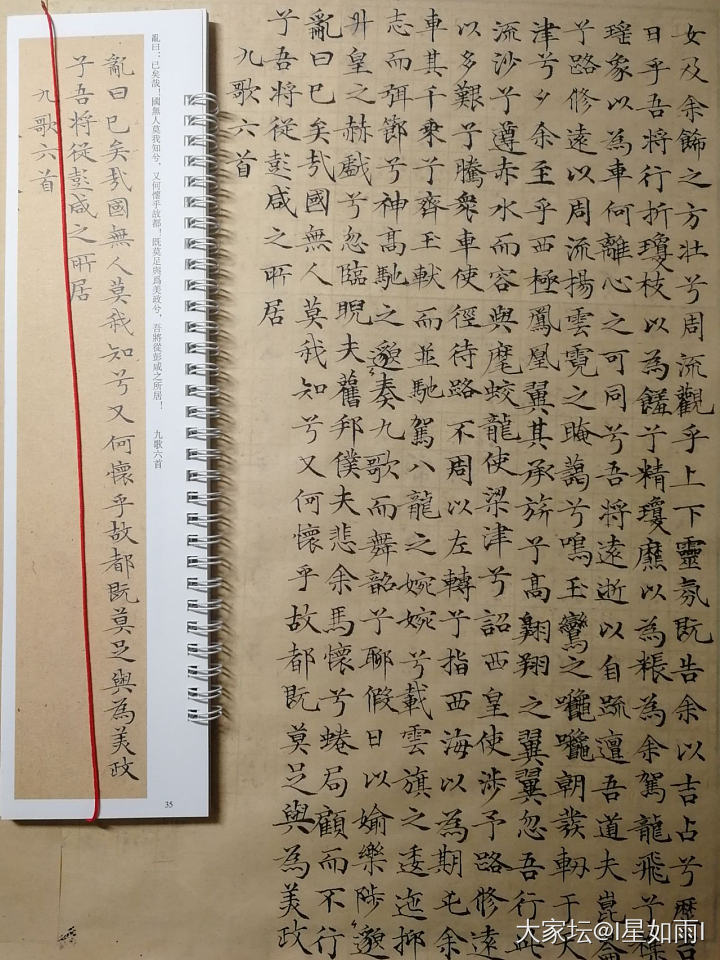 女及余飾之方壯兮周流觀乎上下靈氛既告余以吉占兮歷吉
日乎吾將行折瓊枝以為饈兮精瓊爢以為粻為余駕龍飛兮雜
瑤象以為車何離心之可同兮吾將遠逝以自疏邅吾道夫崑侖
兮路修遠以周流揚雲霓之晻藹兮鳴玉鸞之朝發軔于天
津兮夕余至乎西極鳳凰翼其承旂兮高翱翔之翼翼忽吾行此
流沙兮遵赤水而容與麾蛟龍使梁津兮詔西皇使涉予路修遠
以多艱兮騰衆車使徑待路不周以左轉兮指西海以為期屯余
車其千乘兮齊玉軑而並馳駕八龍之婉婉兮載雲旗之委迤抑
志而弭節兮神高馳之邈奏九歌而舞韶兮聊假日以媮樂陟邈
升皇之赫戲兮忽臨睨夫舊邦僕夫悲余馬懷兮蜷局顧而不行
亂曰已矣哉國無人莫我知兮又何懷乎故都既莫足與為美政
兮吾將從彭咸之所居
九歌六首
亂曰：已矣哉！國無人莫我知兮，又何懷乎故都！既莫足與爲美政兮，吾將從彭咸之所居！　九歌六首
亂曰已矣哉國無人莫我知兮又何懷乎故都既莫足與為美政
兮吾將從彭咸之所居
九歌六首
35
大家坛@I星如雨I